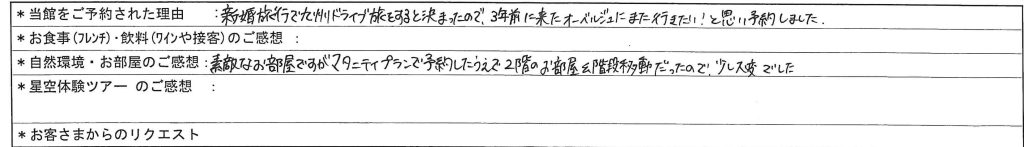 *当館をご予約された理由 :新婚旅行で九州ドライブ旅をすると決まったので、3年前に来たオーベルジュにまた行きたい!と思い予約しました.
*お食事(フレンチ)・飲料(ワインや接客)のご感想 :
*自然環境・お部屋のご感想:素敵なお部屋ですがマタニティプランで予約したうえで2階のお部屋&階段移動だったので、少し大変でした
*星空体験ツアー のご感想 :
*お客さまからのリクエスト